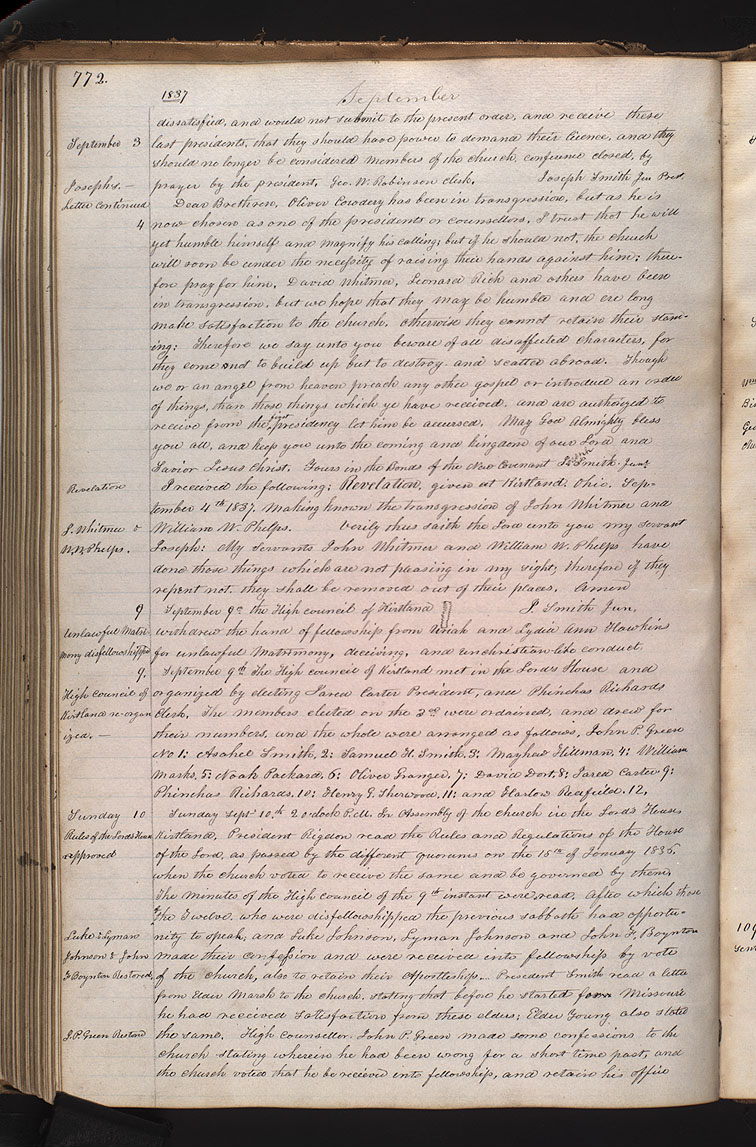 772.
1837
September
dissatisfied, and would not submit to the present order, and receive these
September 3 last presidents, that they should have power to demand their licence, and they
should no longer be considered members of the church, conference closed, by
Joseph's — prayer by the president, Geo. W. Robinson clerk. Joseph Smith Jun Prest.
Letter Continued Dear Brethren, Oliver Cowdery has been in transgression, but as he is
4 now chosen as one of the presidents or counsellors, I trust that he will
yet humble himself and magnify his calling; but if he should not, the church
will soon be under the necessity of raising their hands against him; there-
fore pray for him, David Whitmer, Leonard Rich and others have been
in transgression, but we hope that they may be humble and ere long
make satisfaction to the church, otherwise they cannot retain their stand-
ing; Therefore we say unto you beware of all disaffected characters, for
they come not to build up but to destroy and scatter abroad. Though
we or an angel from heaven preach any other gospel or introduce an order
of things, than those things which ye have received, and are authorized to
receive from the first presidency let him be accursed. May God Almighty bless
you all, and keep you unto the coming and kingdom of our Lord and
Savior Jesus Christ, Yours in the Bonds of the New Covenant J. Smith, Junr.
Revelation I received the following; Revelation, given at Kirtland, Ohio. Sep-
tember 4th 1837. Making known the transgression of John Whitmer and
J. Whitmer & William W. Phelps. Verily thus saith the Lord unto you my servant
W. W. Phelps. Joseph: My Servants John Whitmer and William W. Phelps have
done those things which are not pleasing in my sight, therefore if they
repent not, they shall be removed out of their places. Amen
9 September 9th the High council of Kirtland J Smith Jun,
Unlawful Matri- withdrew the hand of fellowship from Uriah and Lydia Ann Hawkins
mony disfellowshipped for unlawful Matrimony, deceiving, and unchristian-like conduct
9. September 9th The High council of Kirtland met in the Lord's House and
High Council of organized by electing Jared Carter President, and Phinehas Richards
Kirtland re-organ Clerk. The members elected on the 3rd were ordained, and drew for
ized. — their numbers, and the whole were arranged as follows, John P. Green
No 1; Asahel Smith, 2; Samuel H. Smith, 3; Mayhew Hillman, 4; William
Marks, 5; Noah Packard, 6; Oliver Granger, 7; David Dort, 8; Jared Carter 9;
Phinehas Richards, 10; Henry G. Sherwood, 11; and Harlow Redfield, 12.
Sunday 10 Sunday Sept 10th 2 o'clock P.M. An Assembly of the church in the Lord's House
Rules of the Lords House Kirtland, President Rigdon read the Rules and Regulations of the House
approved of the Lord, as passed by the different quorums on the 15th of January 1836,
when the church voted to receive the same and be governed by them,
The minutes of the High council of the 9th instant were read. After which those
of the Twelve, who were disfellowshipped the previous sabbath had opportu-
Luke & Lyman nity to speak, and Luke Johnson, Lyman Johnson and John F. Boynton
Johnson & John made their confession and were received into fellowship by vote
F Boynton Restored, of the church, also to retain their Apostleship. President Smith read a letter
from Elder Marsh to the church, stating that before he started from Missouri
he had received satisfaction from these elders; Elder Young also stated
J. P. Green Restored the same. High Counsellor John P. Green made some confessions to the
church stating wherein he had been wrong for a short time past, and
the church voted that he be received into fellowship, and retain his office